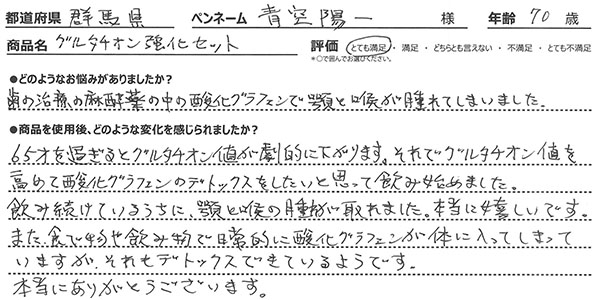 都道府県 群馬県 ペンネーム 青空陽一 様 年齢 70 歳
商品名 グルタチオン強化セット 評価 とても満足・満足・どちらとも言えない・不満足・とても不満足
*○で囲んでお選びください。
●どのようなお悩みがありましたか？
歯の治療の麻酔薬の中の酸化グラフェンで顎と喉が腫れてしまいました。
●商品を使用後、どのような変化を感じられましたか？
65才を過ぎるとグルタチオン値が劇的に下がります。それでグルタチオン値を
高めて酸化グラフェンのデトックスをしたいと思って飲み始めました。
飲み続けているうちに、顎と喉の腫れが取れました。本当に嬉しいです。
また、食べ物や飲み物で日常的に酸化グラフェンが体に入ってしまって
いますが、それもデトックスできているようです。
本当にありがとうございます。